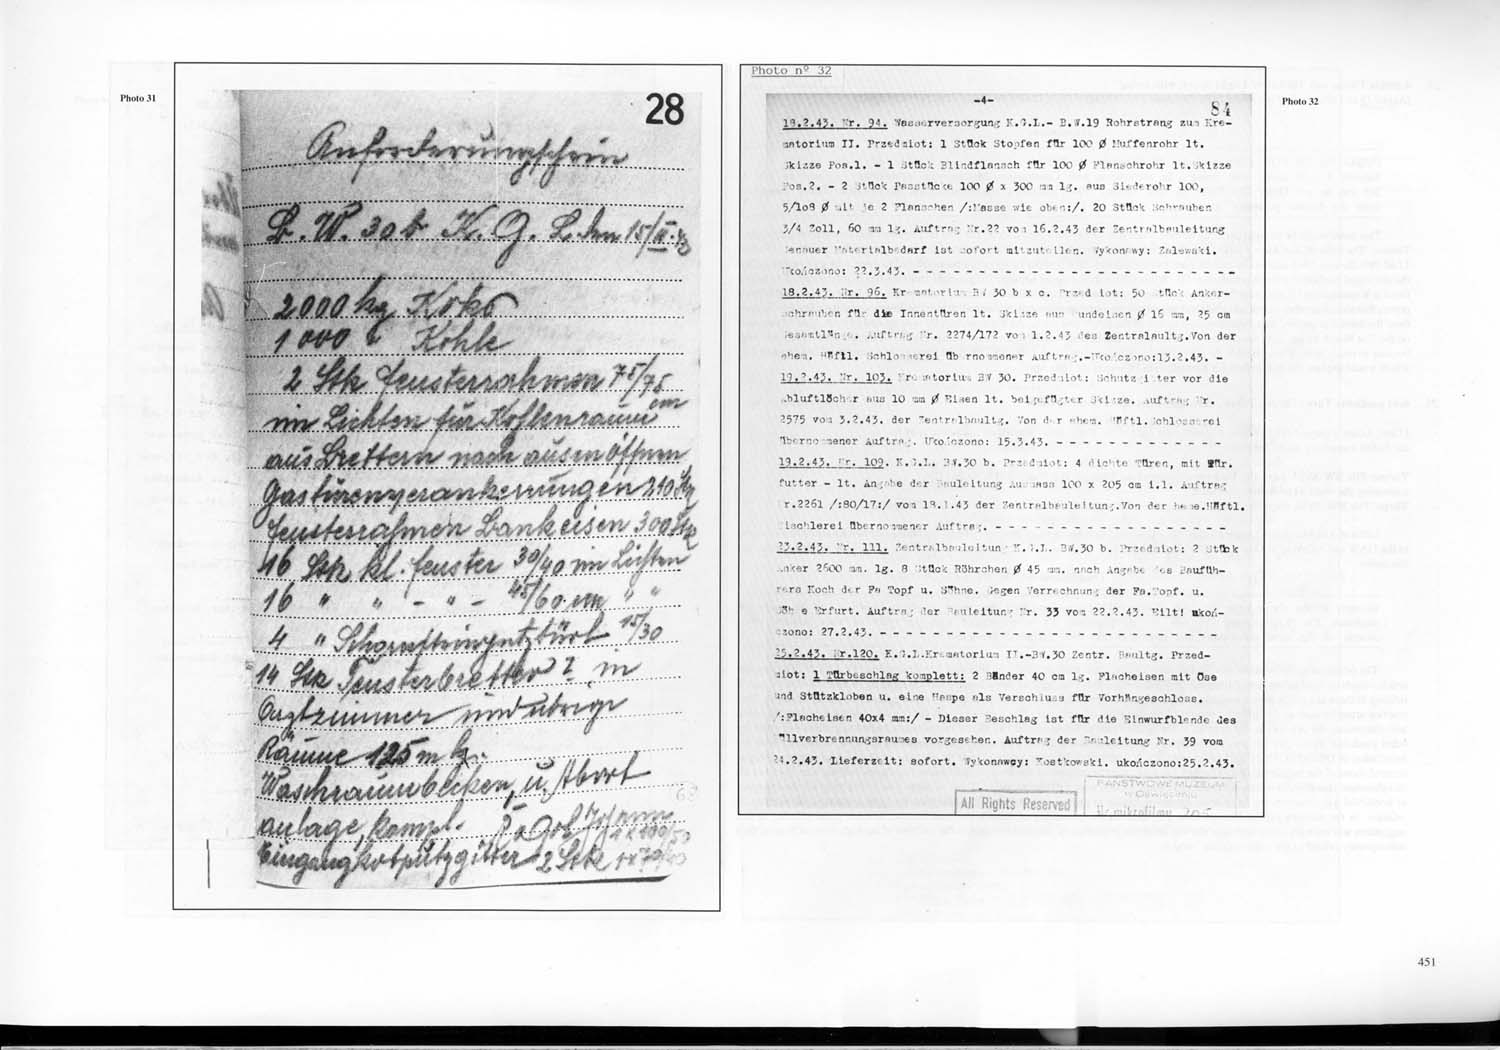 Photo 31
28
Anforderungschein
B. W. 30b K. G. L. den 15/II.43
2000 kg Koks
1000 " Kohle
2 Stk Fensterrahmen 75/75
im Lichten für Kohlenraum cm
aus Brettern nach ausen öffnen
Gastürenverankerungen 210 Stk
Fensterrahmen Bankeisen 300 Stk
16 Stk. kl. Fenster 30/40 im Lichten
16 " " - " - 45/60 cm " "
4 " Schornsteinputztürl 15/30
14 Stk Fensterbretter in
Arztzimmer und übrige
Räume 125 m lg.
Waschraumbecken, u. Abort
anlage, kompl.
1 x 100/50
Eingangkotputzgitter 2 Stk 1 x 70/40
Photo nº 32
Photo 32
-4-
84
18.2.43. Nr. 94. Wasserversorgung K.G.L.- B.W.19 Rohrstrang zum Kre-
matorium II. Przedmiot: 1 Stück Stopfen für 100 Ø Muffenrohr lt.
Skizze Pos.1. - 1 Stück Blindflansch für 100 Ø Flanschrohr lt.Skizze
Pos.2. - 2 Stück Passtücke 100 Ø x 300 mm lg. aus Siederohr 100,
5/108 Ø mit je 2 Flanschen /:Masse wie oben:/. 20 Stück Schrauben
3/4 Zoll, 60 mm lg. Auftrag Nr.22 vom 16.2.43 der Zentralbauleitung
Genauer Materialbedarf ist sofort mitzuteilen. Wykonawy: Zalewski.
Ukończono: 22.3.43. - - - - - - - - - - - - - - - - - - - - - - - - -
18.2.43. Nr. 96. Krematorium BW 30 b x c. Przedmiot: 50 Stück Anker-
schrauben für die Innentüren lt. Skizze aus Rundeisen Ø 16 mm, 25 cm
Gesamtlänge. Auftrag Nr. 2274/172 vom 1.2.43 des Zentralbaultg.Von der
ehem. Häftl. Schlosserei übernommener Auftrag.-Ukończono:13.2.43. -
19.2.43. Nr. 103. Krematorium BW 30. Przedmiot: Schutzgitter vor die
Abluftlöcher aus 10 mm Ø Eisen lt. beigefügter Skizze. Auftrag Nr.
2575 vom 3.2.43. der Zentralbaultg. Von der ehem. Häftl.Schlosserei
übernommener Auftrag. Ukończono: 15.3.43. - - - - - - - - - - - - -
19.2.43. Nr. 109. K.G.L. BW.30 b. Przedmiot: 4 dichte Türen, mit Tür.
futter - lt. Angabe der Bauleitung Ausmass 100 x 205 cm i.l. Auftrag
Nr.2261 /:80/17:/ vom 18.1.43 der Zentralbauleitung.Von der Häftl.
Tischlerei übernommener Auftrag. - - - - - - - - - - - - - - - - - -
23.2.43. Nr. 111. Zentralbauleitung K.G.L. BW.30 b. Przedmiot: 2 Stück
Anker 2600 mm. lg. 8 Stück Röhrchen Ø 45 mm. nach Angabe des Baufüh-
rers Koch der Fa Topf u. Söhne. Gegen Verrechnung der Fa.Topf. u.
Söhne Erfurt. Auftrag der Bauleitung Nr. 33 vom 22.2.43. Eilt! ukoń-
czono: 27.2.43. - - - - - - - - - - - - - - - - - - - - - - - - - -
25.2.43. Nr.120. K.G.L.Krematorium II.-BW.30 Zentr. Baultg. Przed-
miot: 1 Türbeschlag komplett: 2 Bänder 40 cm lg. Flacheisen mit Öse
und Stützkloben u. eine Haspe als Verschluss für Vorhängeschloss.
/:Flacheisen 40x4 mm:/ - Dieser Beschlag ist für die Einwurfblende des
Müllverbrennungsraumes vorgesehen. Auftrag der Bauleitung Nr. 39 vom
24.2.43. Lieferzeit: sofort. Wykonawcy: Kostkowski. ukończono:25.2.43.
All Rights Reserved
PAŃSTWOWE MUZEUM
w Oświęcimiu
Nr mikrofilmu 205
451